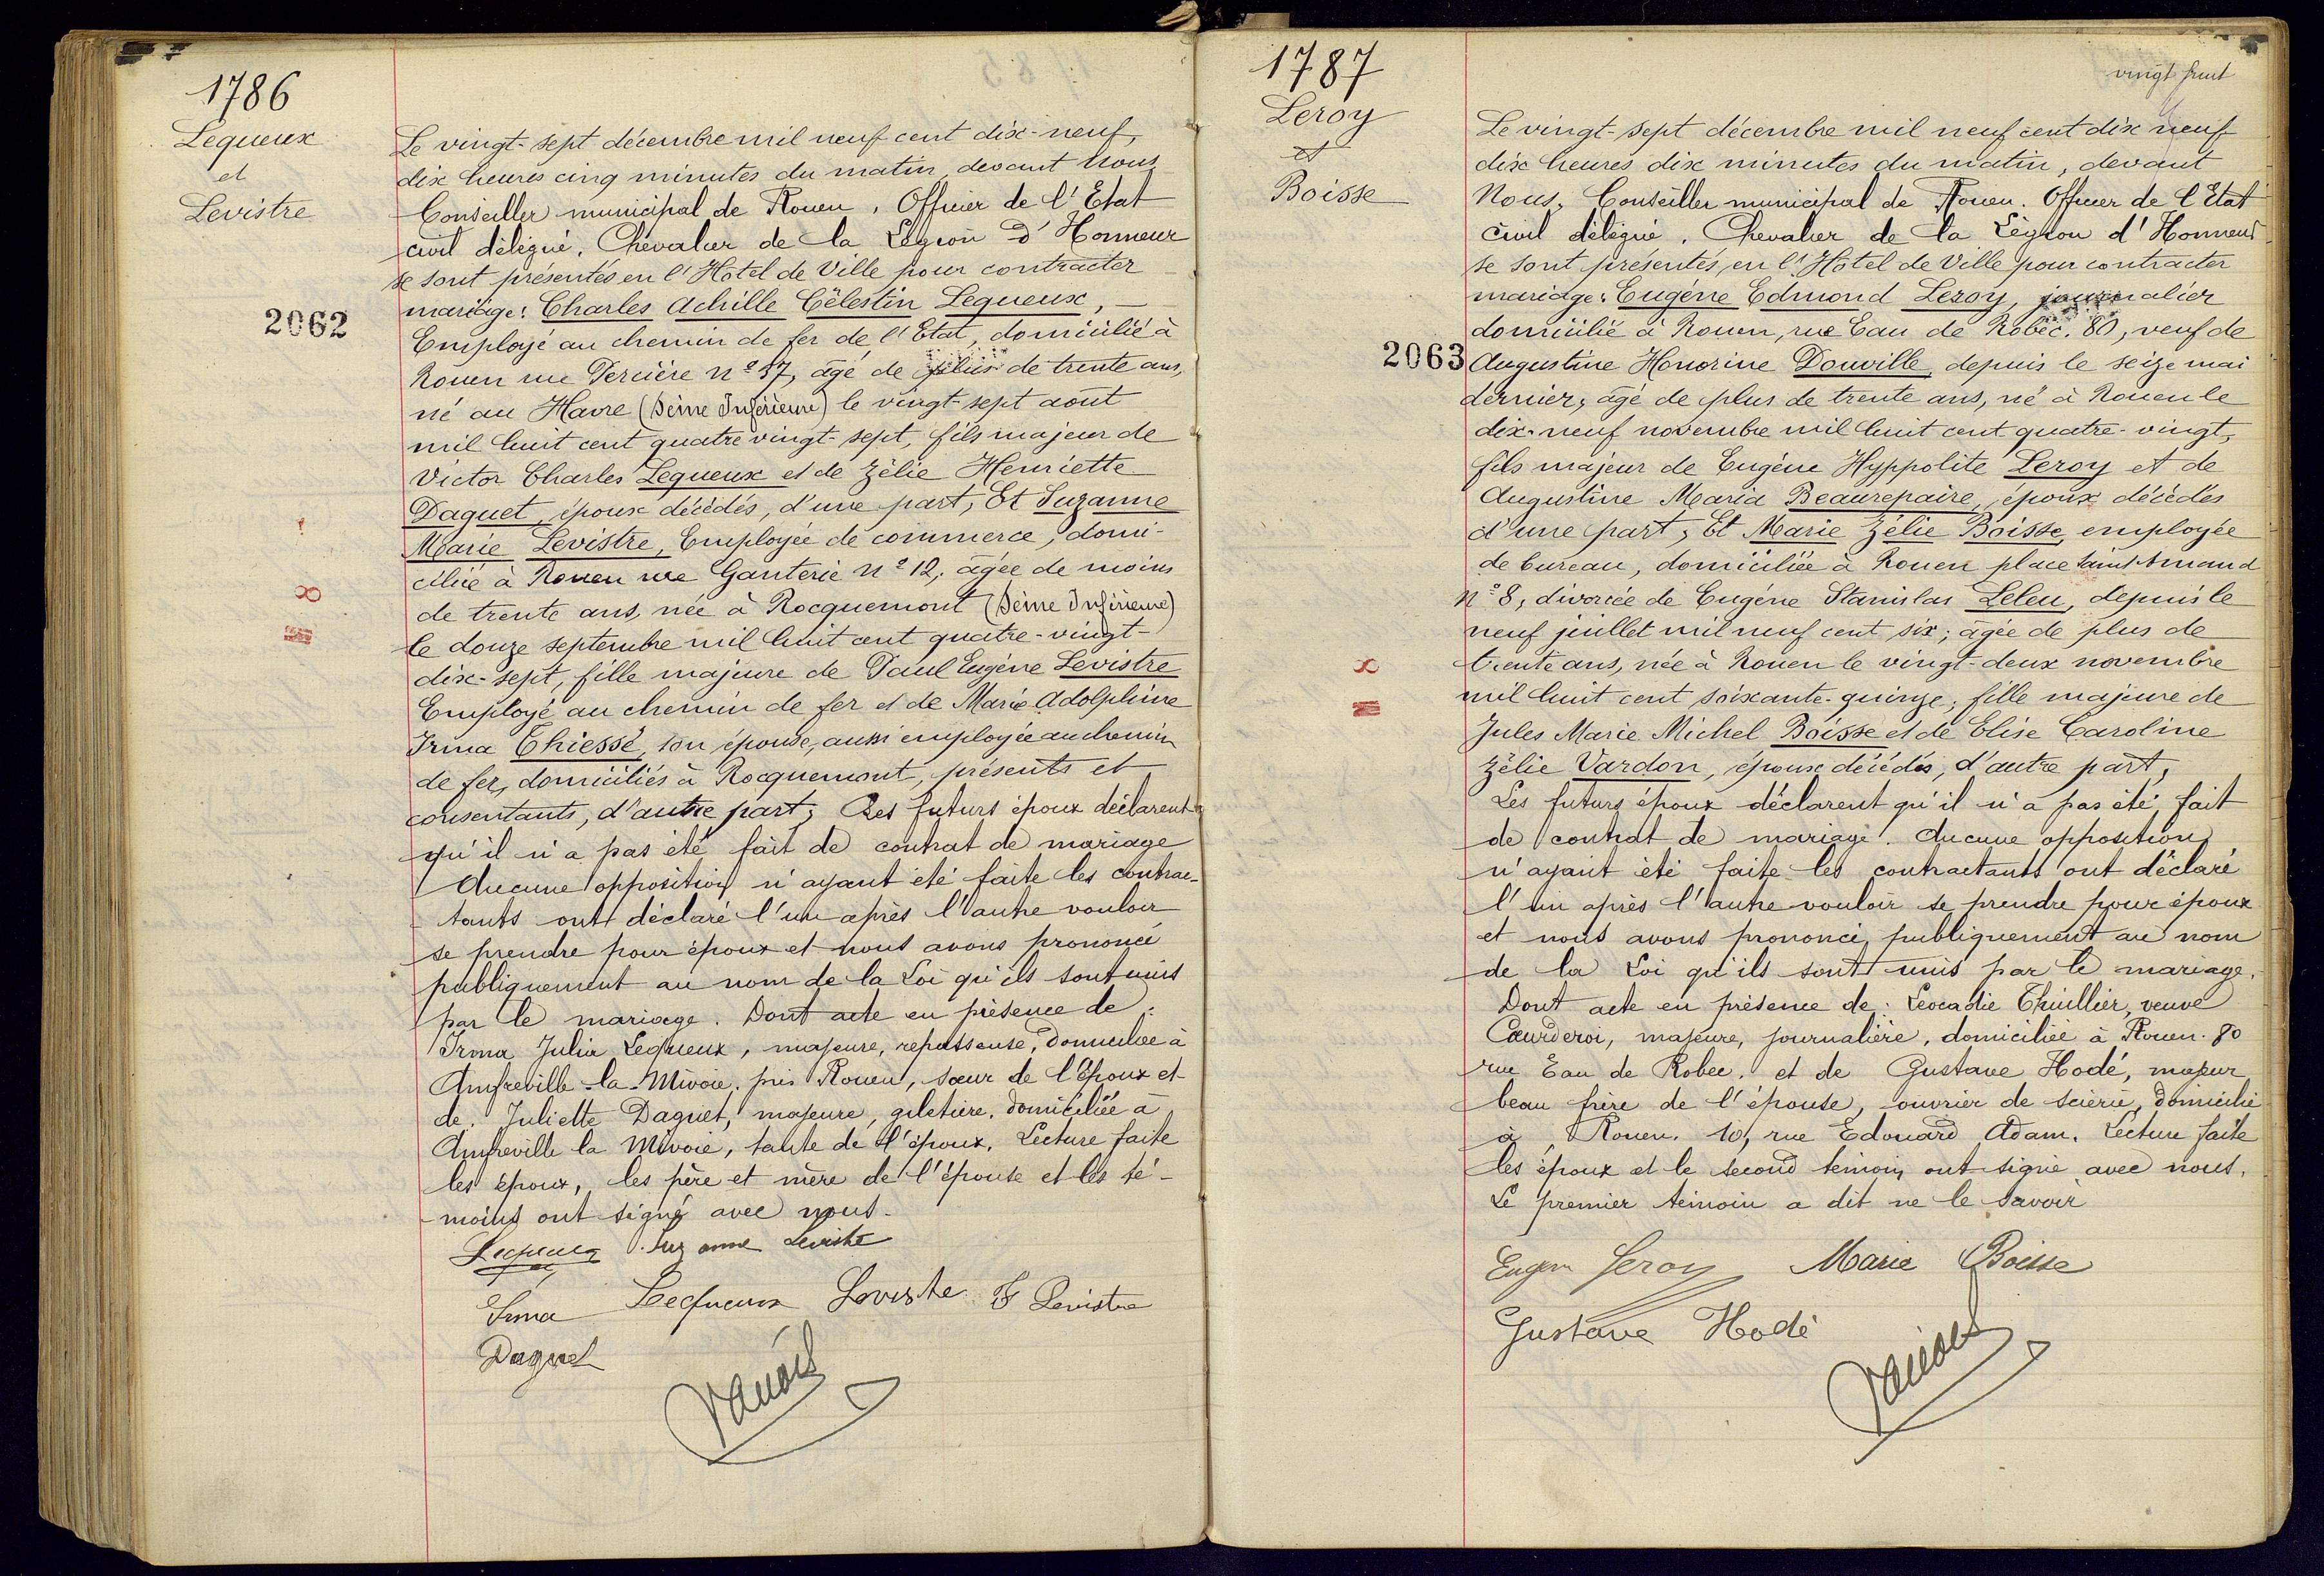 1786
Lequeux
et
Levistre
2062
Le vingt-sept décembre mil neuf cent dix-neuf,
dix heures cinq minutes du matin, devant Nous
Conseiller municipal de Rouen, Officier de l'Etat
civil délégué, Chevalier de la Légion d'Honneur
se sont présentés en l'Hôtel de Ville pour contracter
mariage: Charles Achille Célestin Lequeux,
Employé au chemin de fer de l'Etat, domicilié à
Rouen rue Percière n° 37, âgé de plus de trente ans,
né au Havre (Seine Inférieure) le vingt-sept août
mil huit cent quatre vingt-sept, fils majeur de
Victor Charles Lequeux et de Zélie Henriette
Daquet, époux décédés, d'une part, Et Suzanne
Marie Levistre, Employée de commerce, domi-
ciliée à Rouen rue Ganterie n° 12, âgée de moins
de trente ans, née à Rocquemont (Seine Inférieure)
le douze septembre mil huit cent quatre-vingt-
dix-sept, fille majeure de Paul Eugène Levistre
Employé au chemin de fer et de Marie Adolphine
Irma Thiessé, son épouse, aussi employée au chemin
de fer, domiciliés à Rocquemont, présents et
consentants, d'autre part; Les futurs époux déclarent
qu'il n'a pas été fait de contrat de mariage
Aucune opposition n'ayant été faite les contrac-
tants ont déclaré l'un après l'autre vouloir
se prendre pour époux et nous avons prononcé
publiquement au nom de la Loi qu'ils sont unis
par le mariage. Dont acte en présence de:
Irma Julia Lequeux, majeure, repasseuse, domiciliée à
Amfreville-la-Mivoie, près Rouen, sœur de l'époux et
de Juliette Daquet, majeure, giletière, domiciliée à
Amfreville la Mivoie, tante de l'époux. Lecture faite
les époux, les père et mère de l'épouse et les té-
moins ont signé avec nous.
Lequeux Suzanne Levistre
Irma Lequeux Levistre I Levistre
Daquet
1787
Leroy
et
Boisse
2063
vingt huit
Le vingt-sept décembre mil neuf cent dix neuf
dix heures dix minutes du matin, devant
Nous, Conseiller municipal de Rouen. Officier de l'Etat
civil délégué, Chevalier de la Légion d'Honneur
se sont présentés, en l'Hôtel de Ville pour contracter
mariage: Eugène Edmond Leroy, journalier
domicilié à Rouen, rue Eau de Robec. 80, veuf de
Augustine Honorine Douville, depuis le seize mai
dernier, âgé de plus de trente ans, né à Rouen le
dix-neuf novembre mil huit cent quatre-vingt,
fils majeur de Eugène Hyppolite Leroy et de
Augustine Maria Beaurepaire, époux décédés
d'une part, Et Marie Zélie Boisse, employée
de bureau, domiciliée à Rouen place Saint-Amand
n° 8, divorcée de Eugène Stanislas Leleu, depuis le
neuf juillet mil neuf cent six; âgée de plus de
trente ans, née à Rouen le vingt-deux novembre
mil huit cent soixante-quinze, fille majeure de
Jules Marie Michel Boisse et de Elise Caroline
Zélie Vardon, époux décédés, d'autre part,
Les futurs époux déclarent qu'il n'a pas été fait
de contrat de mariage. Aucune opposition
n'ayant été faite les contractants ont déclaré
l'un après l'autre vouloir se prendre pour époux
et nous avons prononcé, publiquement au nom
de la Loi qu'ils sont unis par le mariage.
Dont acte en présence de: Léocadie Thuillier, veuve
Courderoi, majeure, journalière, domiciliée à Rouen. 80
rue Eau de Robec, et de Gustave Hodé, majeur
beau frère de l'épouse, ouvrier de scierie, domicilié
à Rouen. 10, rue Edouard Adam. Lecture faite
les époux et le second témoin ont signé avec nous.
Le premier témoin a dit ne le savoir
Eugène Leroy Marie Boisse
Gustave Hodé